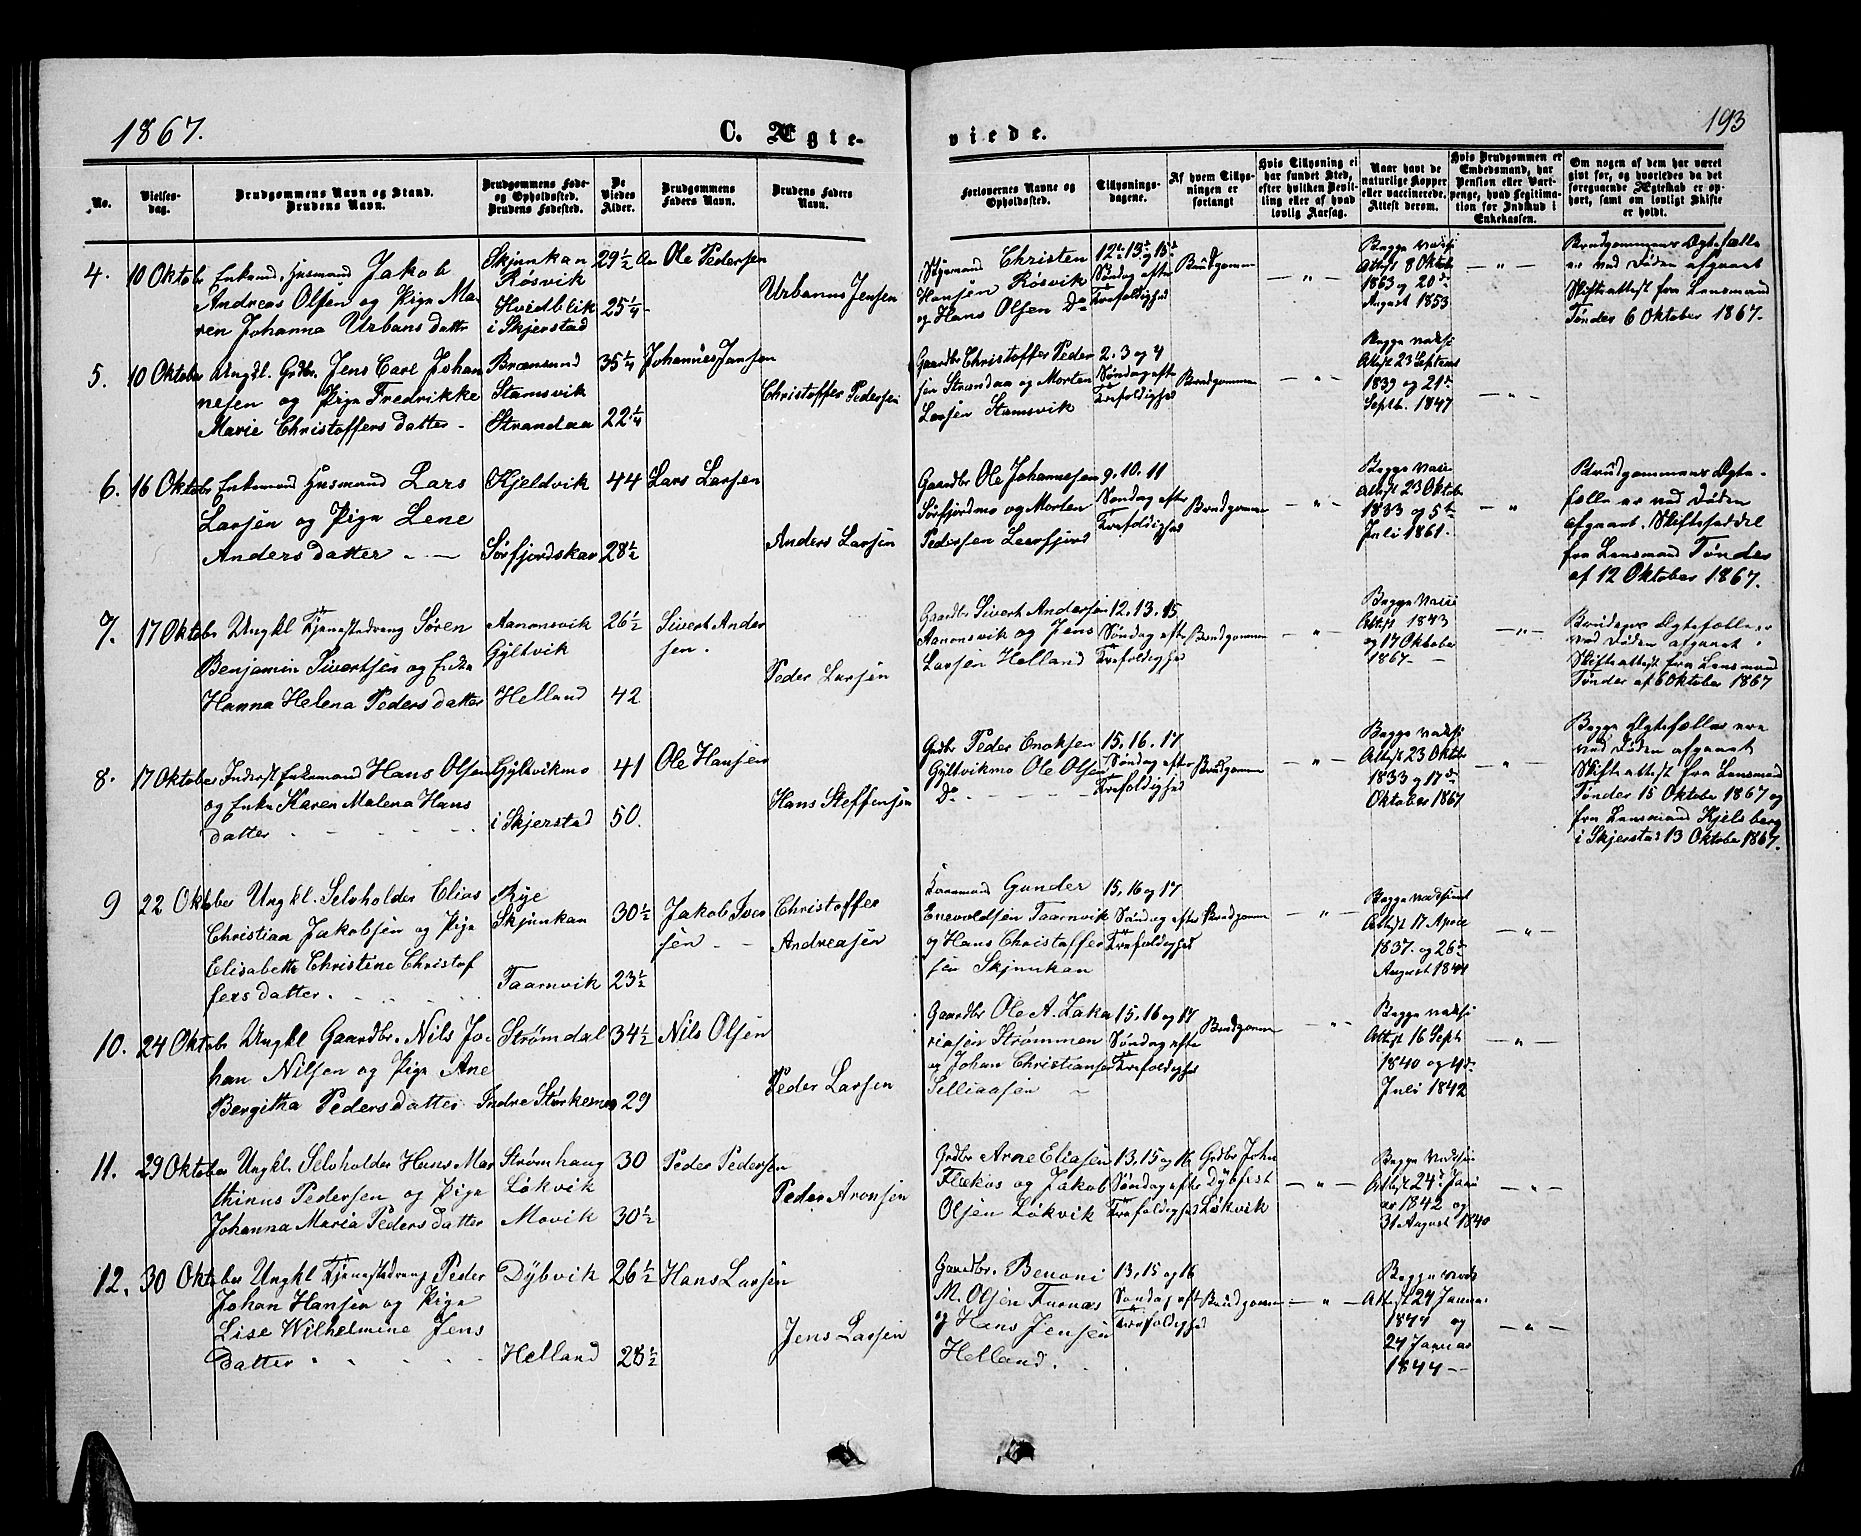 1867.
C. Ægte-
viede.
193
No.
Vielses-
dag.
Brudgommens Navn og Stand.
Brudens Navn.
Brudgommens Føde-
og Opholdssted.
Brudens Fødested.
De
Viedes
Alder.
Brudgommens
Faders Navn.
Brudens Faders
Navn.
Forlovernes Navne og
Opholdssted.
Tillysnings-
dagene.
Af hvem Tillys-
ningen er
forlangt
Hvis Tillysning ei
har fundet Sted,
efter hvilken Bevil-
ling eller af hvad
lovlig Aarsag.
Naar havt de
naturlige Kopper
eller vaccinerede.
Attest derom.
Hvis Brudgommen er
Embedsmand, har
Pension eller Vart-
penge, hvad Legitima-
tion for Indskud i
Enkekassen.
Om nogen af dem har været
givt før, og hvorledes da det
foregaaende Ægteskab er op-
hørt, samt om lovligt Skifte
er holdt.
4. 10 Oktobr Enkemd. Husmand Jakob
Andreas Olsen og Pige Ma-
ren Johanna Urbans datter
Skjunkan
Røsvik
Hvedblik
i Skjerstad
29 1/2
25 1/4
Ole Pedersen
Urbanus Jensen
Christen
Hansen Røsvik
og Hans Olsen Do
12te 13de 15de
Søndag efter
Trefoldighed
Brudgommen
Begge vaksi
Attest 8 Oktobr
1863 og 20de
August 1853
Brudgommens Ægtefælle
er ved Døden afgaaet
Skifteattest fra Lensmand
Tønder 6 Oktober 1867.
5. 10 Oktober Ungkl. Grdbr. Jens Carl Johan
nesen og Pige Fredrikke
Marie Christoffers datter
Brænsund
Stamsvik
Strandaa
35 1/4
22 1/4
Johannes Jensen
Christoffer Pedersen
Gaardbr Christoffer Peder
sen Strandaa og Morten
Larsen Stamsvik
2. 3 og 4
Søndag efter
Trefoldighed
Brudgommen
Begge vaksi
Attest 23 Septem
1839 og 21de
Septb. 1847
6. 16 Oktobr Enkemand Husmand Lars
Larsen og Pige Lene
Anders datter
Kjeldvik
Sørfjordskar
44
28 1/2
Lars Larsen
Anders Larsen
Gaardbr Ole Johannesen
Sørfjordmo og Morten
Pedersen Leerfjord
9. 10. 11
Søndag efter
Trefoldighed
Brudgommen
Begge Vacci
Attest 23 Oktobr
1833 og 5te
Juli 1861.
Brudgommens Ægte-
fælle er ved Døden
afgaaet. Skifteseddel
fra Lensmand Tønder
af 12 Oktober 1867.
7. 17 Oktobr Ungkl Tjenestedreng Søren
Benjamin Sivertsen og Enke
Hanna Helena Peders datter
Aanonsvik
Gyltvik
Helland
26 1/2
42
Sivert Ander
sen.
Peder Larsen
Gaardbr Sivert Andersen
Aanonsvik og Jens
Larsen Helland
12. 13. 15
Søndag efter
Trefoldighed
Brudgommen
Begge Vacci
Attest 1843
og 17 Oktober
1867
Brudens Ægtefælle er
ved Døden afgaaet
Skifteattest fra Lensmand
Tønder af 6 Oktober 1867
8. 17 Oktober Inderst Enkemand Hans Olsen
og Enke Karen Malena Hans
datter
Gyltvikmo
i Skjerstad
41
50.
Ole Hansen
Hans Steffensen
Grdbr Peder Enoksen
Gyltvikmo Ole Olsen
Do
15, 16. 17
Søndag efter
Trefoldighed
Brudgommen
Begge vaksi
Attest 23 Oktbr
1833 og 17de
Oktober 1867
Begge Ægtefæller ere
ved Døden afgaaet
Skifteattest fra Lensmand
Tønder 15 Oktober 1867 og
fra Lensmand Kjelsberg
i Skjerstad 13 Oktober 1867.
9 22 Oktober Ungkl. Selvholder Elias
Christian Jakobsen og Pige
Elisabeth Christine Christof
fers datter.
Rye
Skjunkan
Taarnvik
30 1/2
23 1/2
Jakob Iver
sen
Christoffer
Andreasen
Gunder
Enevoldsen Taarnvik
og Hans Christoffer
sen Skjunkan
15, 16 og 17
Søndag efter
Trefoldighed
Brudgommen
Begge vaksinert
Attest 17 April
1837. og 26de
August 1844
10. 24 Oktobr Ungkl Gaardbr. Nils Jo-
han Nilsen og Pige Ane
Bergitha Peders datter
Strømdal
Indre Størkersen
34 1/2
29
Nils Olsen
Peder Larsen
Gaardbr Ole A. Zaka
riasen Strømmen
og Johan Christiansen
15, 16 og 17
Søndag efter
Trefoldighed
Brudgommen
Begge vaksi
Attest 16 Sept
1840 og 4de
Juli 1842
11. 29 Oktober Ungkl. Selvholder Hans Mar
thinus Pedersen og Pige
Johanna Maria Peders datter
Strømhaug
Løkvik
Movik
30
30 1/2
Peder Pedersen
Peder Aronsen
Grdbr Arne Eliasen
Flakas og Jakob
Olsen Løkvik
13, 15 og 16
Søndag efter
Trefoldighed
Grdbr John
Dybfest
Løkvik
Begge Vaksi
Attest 24de Janu
ar 1842 og
31 August 1840
12. 30 Oktober Ungkl Tjenestedreng Peder
Johan Hansen og Pige
Lise Wilhelmine Jens
datter
Dybvik
Helland
26 1/2
28 1/2
Hans Larsen
Jens Larsen
Gaardbr. Benoni
M. Olsen Furnæs
og Hans Jensen
Helland.
13, 15 og 16
Søndag eft
Trefoldighed
Brudgommen
Begge vaks
Attest 24 Januar
1844 og
24 Januar
1844